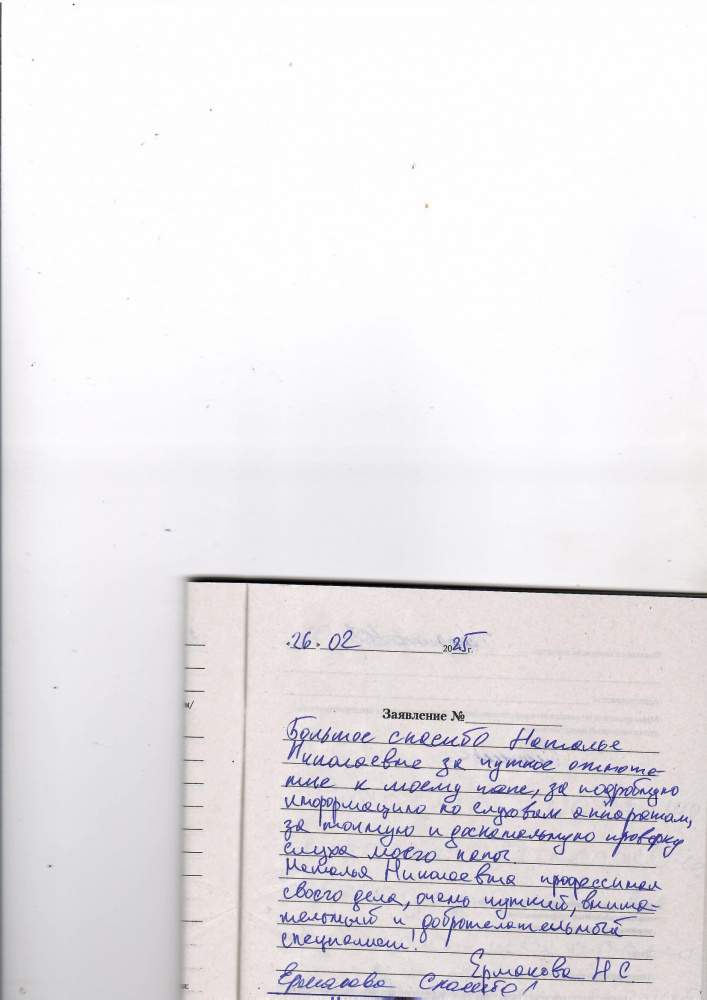 26.02 2025г.
Заявление №
Большое спасибо Наталье
Николаевне за чуткое отноше-
ние к моему папе, за подробную
информацию по слуховым аппаратам,
за точную и доскональную проверку
слуха моего папы.
Наталья Николаевна профессионал
своего дела, очень чуткий, внима-
тельный и доброжелательный
специалист!
Ермакова Н С
Ермакова Спасибо!